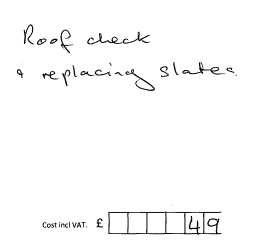 Roof check
& replacing slates.
Cost incl VAT. £ 49